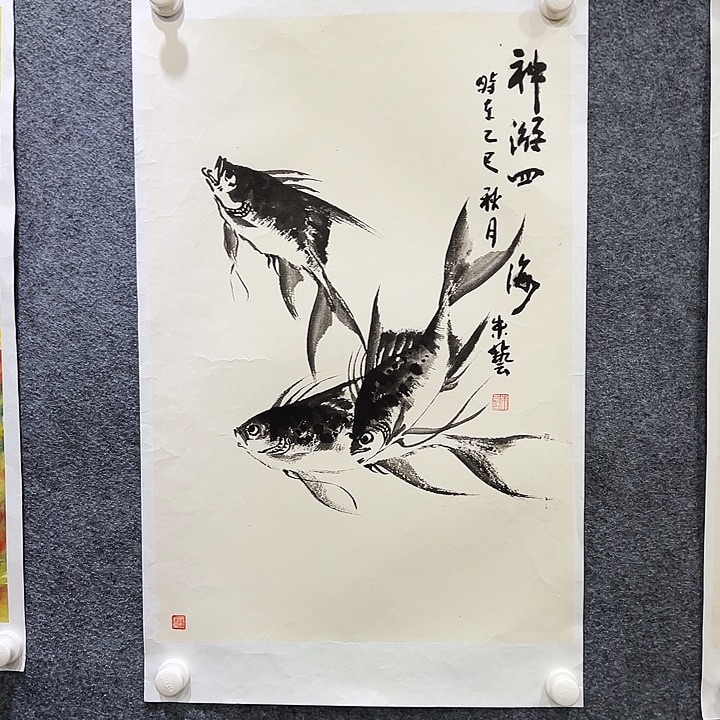 神游四海
时在乙巳秋月
朱艺